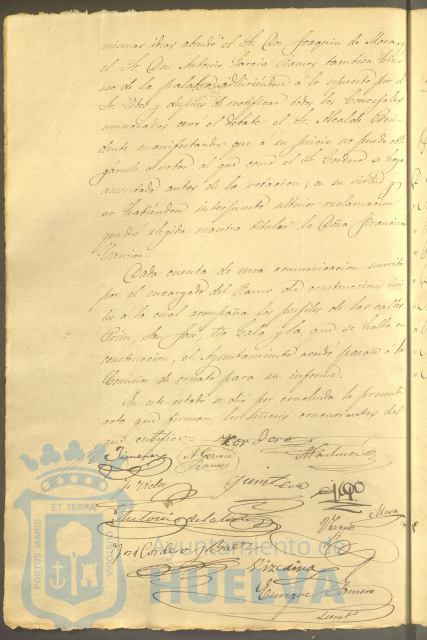 mismas ideas abundó el Sr. Don Joaquin de Mora, y
el Sr. Don Antonio Garcia Ramos tambien hizo
uso de la palabra adhiriendose á lo espuesto por el
Sr. y despues de rectificar todos los Concejales
enunciados cerró el debate el Sr. Alcalde Presi-
dente manifestando que á su juicio no puede obli-
gársele a votar al que como el Sr. Cordero se haya
ausentado antes de la votacion; en su virtud y
no habiéndose interpuesto ulterior reclamacion
quedó elegida maestra titular la Doña Francisca
Dada cuenta de una comunicacion suscrita
por el encargado del Ramo de construcciones civi-
les á la cual acompaña los perfiles de las calles
Prim, San José, Rio y la que se halla en
construccion, el Ayuntamiento acordó pasara á la
Comision de ornato para su informe.
En este estado se dió por concluida la presente
acta que firman los señores concurrentes de
que certifico =
Cordero
A. Garcia
Ramos
Quintero
Mora
Vazquez
Antonio del
José Cordero y Baez
Vizcaino
Enrique Romero
PORTUS MARIS ET TERRAE CUSTODIA
Ayuntamiento de
HUELVA